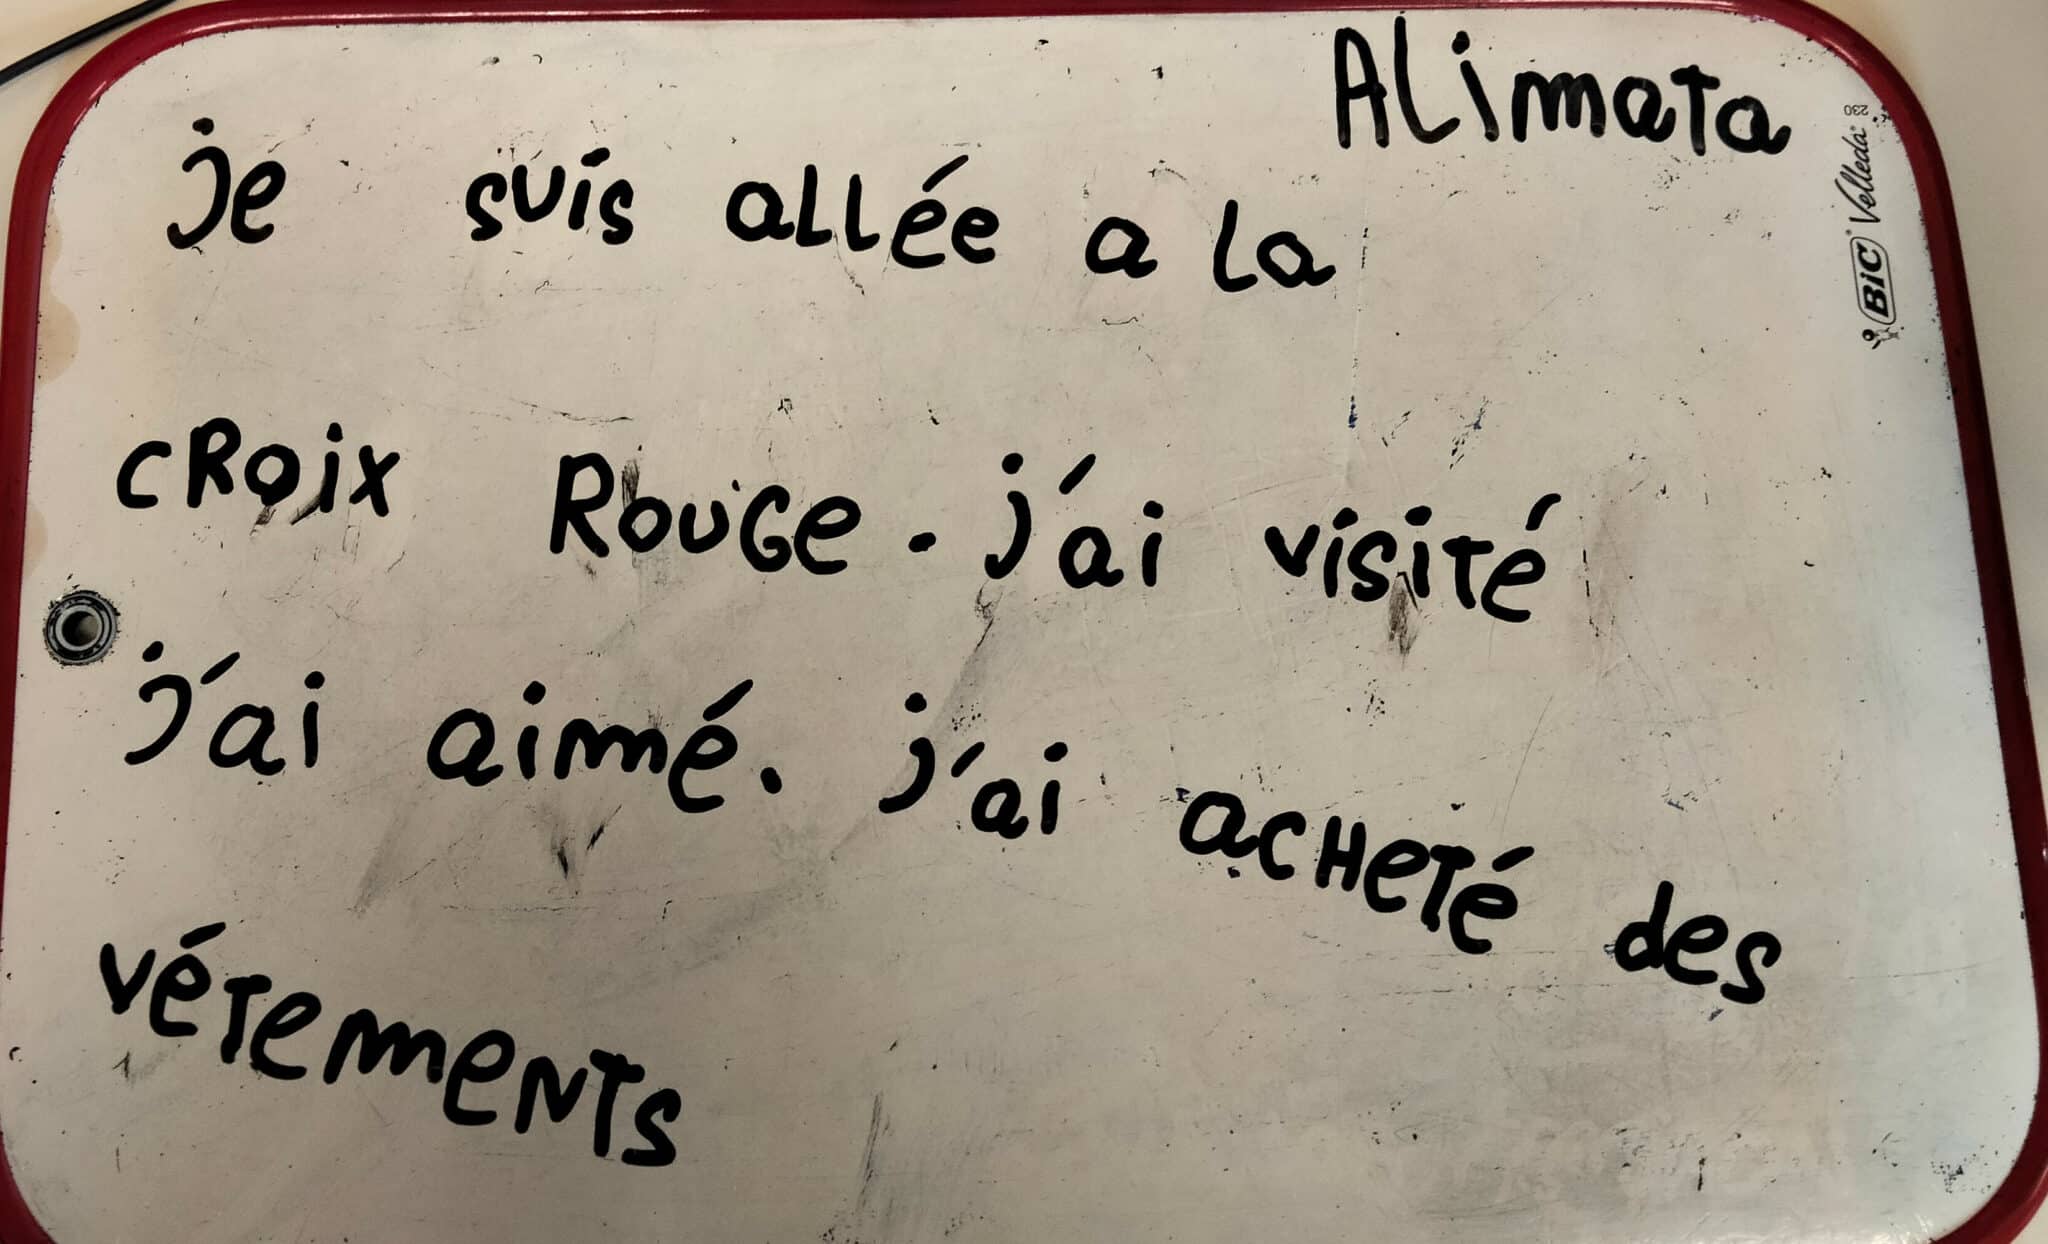 ALimata
je suis allée a la
cRoix RouGe. j'ai visité
j'ai aimé. j'ai acHeté des
vétements
BiC Velleda 230